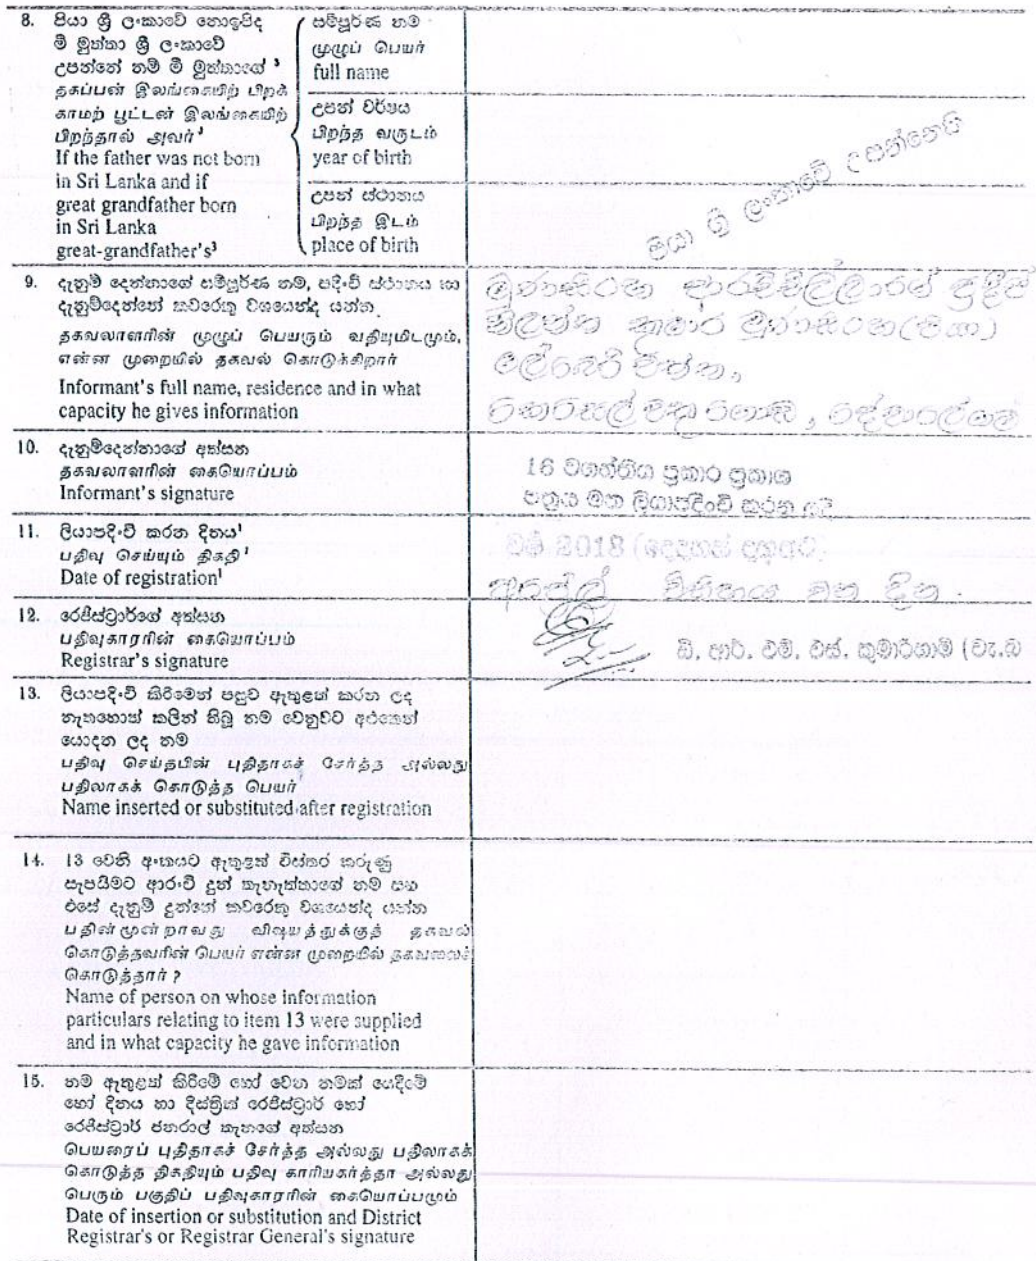 8. පියා ශ්‍රී ලංකාවේ නොඉපිද
මී මුත්තා ශ්‍රී ලංකාවේ
උපන්නේ නම් මී මුත්තාගේ ³
தகப்பன் இலங்கையிற் பிறக்
காமற் பூட்டன் இலங்கையிற்
பிறந்தால் அவர்³
If the father was not born
in Sri Lanka and if
great grandfather born
in Sri Lanka
great-grandfather's³
සම්පූර්ණ නම
முழுப் பெயர்
full name
උපන් වර්ෂය
பிறந்த வருடம்
year of birth
උපන් ස්ථානය
பிறந்த இடம்
place of birth
පියා ශ්‍රී ලංකාවේ උපන්නෙයි
9. දැනුම් දෙන්නාගේ සම්පූර්ණ නම, පදිංචි ස්ථානය සහ
දැනුම්දෙන්නේ කවරෙකු වශයෙන්ද යන්න
தகவலாளரின் முழுப் பெயரும் வதியுமிடமும்,
என்ன முறையில் தகவல் கொடுக்கிறார்
Informant's full name, residence and in what
capacity he gives information
මුණසිංහ ආරච්චිල්ලාගේ ප්‍රදීප්
නිලන්ත කුමාර මුණසිංහ (පියා)
10. දැනුම්දෙන්නාගේ අත්සන
தகவலாளரின் கையொப்பம்
Informant's signature
16 වගන්තිය ප්‍රකාර ප්‍රකාශ
පත්‍රය මත ලියාපදිංචි කරන ලදි
11. ලියාපදිංචි කරන දිනය¹
பதிவு செய்யும் திகதி¹
Date of registration¹
වර්ෂ 2018 (දෙදහස් දහඅට)
අප්‍රේල් විසිහය වන දින
12. රෙජිස්ට්‍රාර්ගේ අත්සන
பதிவுகாரரின் கையொப்பம்
Registrar's signature
ඩී. ආර්. එම්. එස්. කුමාරිහාමි (වැ.බ
13. ලියාපදිංචි කිරීමෙන් පසුව ඇතුළත් කරන ලද
නැතහොත් කලින් තිබූ නම වෙනුවට අරතෙන්
යොදන ලද නම
பதிவு செய்தபின் புதிதாகச் சேர்த்த அல்லது
பதிலாகக் கொடுத்த பெயர்
Name inserted or substituted after registration
14. 13 වෙනි අංකයට ඇතුළත් විස්තර කරුණු
සැපයීමට ආරංචි දුන් තැනැත්තාගේ නම සහ
එසේ දැනුම් දුන්නේ කවරෙකු වශයෙන්ද යන්න
பதின்மூன்றாவது விஷயத்துக்குத் தகவல்
கொடுத்தவரின் பெயர் என்ன முறையில் தகவலைக்
கொடுத்தார் ?
Name of person on whose information
particulars relating to item 13 were supplied
and in what capacity he gave information
15. නම ඇතුළත් කිරීමේ හෝ වෙන නමක් යෙදීමේ
හෝ දිනය හා දිස්ත්‍රික් රෙජිස්ට්‍රාර් හෝ
රෙජිස්ට්‍රාර් ජනරාල් තැනගේ අත්සන
பெயரைப் புதிதாகச் சேர்த்த அல்லது பதிலாகக்
கொடுத்த திகதியும் பதிவு காரியகர்த்தா அல்லது
பெரும் பகுதிப் பதிவுகாரரின் கையொப்பமும்
Date of insertion or substitution and District
Registrar's or Registrar General's signature